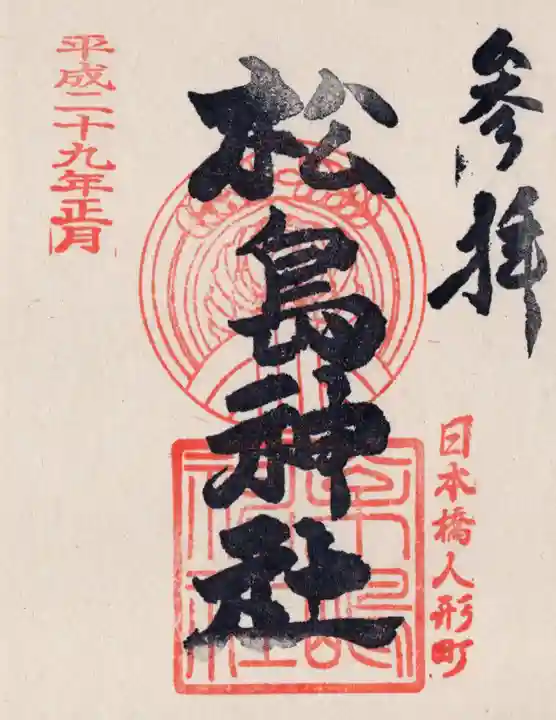 参拝
日本橋人形町
松島神社
平成二十九年正月